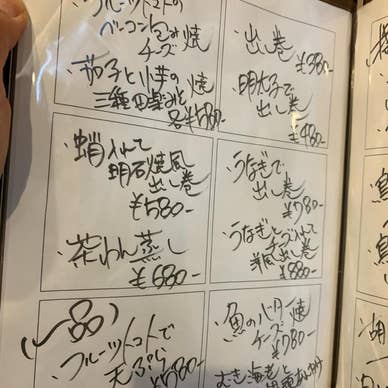 ・フルーツトマトの
ベーコン包み焼
チーズ
・茄子と小芋の
三種田楽みそ焼
各¥580-
・出し巻
¥380-
・明太子で
出し巻
¥480-
・蛸入れて
明石焼風
出し巻
¥580-
・茶わん蒸し
¥680-
・うなぎで
出し巻
¥780-
・うなぎと
チーズ入れて
洋風出し巻
¥880-
・フルーツトマトで
天ぷら
¥580-
・魚の
焼
チーズ
¥780-
むき海老と